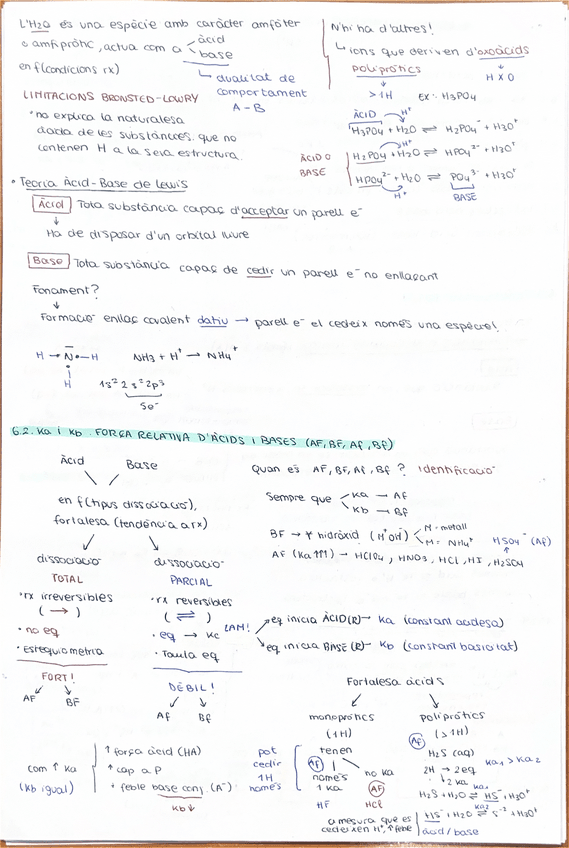 L'H2O és una espècie amb caràcter amfòter
o amfipròtic, actua com a < àcid
base
en f(condicions rx)
↳ dualitat de
comportament
A - B
LIMITACIONS BRONSTED-LOWRY
• no explica la naturalesa
àcida de les substàncies que no
contenen H a la seva estructura.
N'hi ha d'altres!
↳ ions que deriven d'oxoàcids
poliprotics
H X O
> 1H EX: H3PO4
ÀCID H+
H3PO4 + H2O ⇌ H2PO4⁻ + H3O⁺
ÀCID O
BASE
H2PO4 + H2O ⇌ HPO4²⁻ + H3O⁺
HPO4²⁻ + H2O ⇌ PO4³⁻ + H3O⁺
H+ BASE
• Teoria Àcid-Base de Lewis
Àcid Tota substància capaç d'acceptar un parell e⁻
↓
Ha de disposar d'un orbital lliure
Base Tota substància capaç de cedir un parell e⁻ no enllaçant
Fonament?
↓
Formació enllaç covalent datiu → parell e⁻ el cedeix només una espècie!
H - N - H NH3 + H⁺ → NH4⁺
H 1s² 2s² 2p³
5e⁻
6.2. Ka i Kb. FORÇA RELATIVA D'ÀCIDS I BASES (AF, BF, Af, Bf)
Àcid Base
en f(tipus dissociació),
fortalesa (tendència a rx)
dissociació
TOTAL
• rx irreversibles
( → )
• no eq
• Estequiometria
FORT!
AF BF
dissociació
PARCIAL
• rx reversibles
( ⇌ )
• eq → Kc
• Taula eq
DÈBIL!
Af Bf
Quan és AF, BF, Af, Bf? Identificació
Sempre que < Ka → Af
Kb → Bf
BF → hidròxid (M⁺OH⁻) < M = metall
M = NH4⁺
HSO4⁻ (Af)
AF (Ka ↑↑↑) → HClO4, HNO3, HCl, HI, H2SO4
eq inicia ÀCID (R) → Ka (constant acidesa)
eq inicia BASE (R) → Kb (constant basicitat)
com ↑ Ka
(Kb igual)
↑ força àcid (HA)
↑ cap a P
+ feble base conj. (A⁻)
Kb ↓
Fortalesa àcids
monopròtics
(1H)
pot
cedir
1H
només
tenen
Af
només
1 Ka
HF
no Ka
AF
HCl
polipròtics
Af (> 1H)
H2S (aq)
2H → 2eq
↳ 2 Ka
Ka1 > Ka2
H2S + H2O ⇌ HS⁻ + H3O⁺
Ka2
HS⁻ + H2O ⇌ S⁻² + H3O⁺
àcid/base
a mesura que es
cedeixen H⁺, ↑ feble